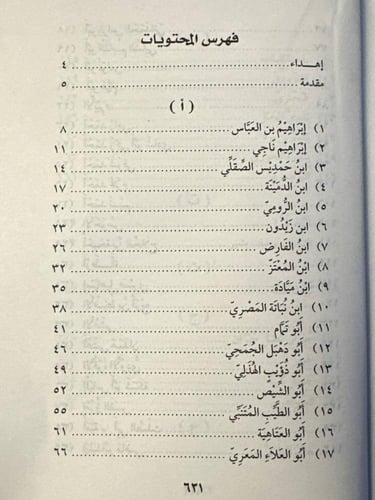 فهرس المحتويات
إهداء ٤
مقدمة ٥
( أ )
١) إبْرَاهِيْمُ بن العَبَّاس ٨
٢) إبْرَاهِيْم نَاجِي ١١
٣) ابنُ حَمْدِيْس الصِّقَلِّي ١٤
٤) ابْنُ الدُّمَيْنَة ١٧
٥) ابْنُ الرُّومِيّ ٢٠
٦) ابن زَيْدُون ٢٣
٧) ابْنُ الفَارِض ٢٦
٨) ابْنُ المُعْتَزّ ٣٢
٩) ابْنُ مَيَّادَة ٣٥
١٠) ابنُ نُبَاتَة المَصْرِيّ ٣٨
١١) أَبُو تَمَّام ٤١
١٢) أَبُو دَهْبَل الجُمَحِيّ ٤٦
١٣) أَبُو ذُؤَيْب الهُذَلِيّ ٤٩
١٤) أَبُو الشِّيْص ٥٢
١٥) أَبُو الطَّيِّب المُتَنَبِّي ٥٥
١٦) أَبُو العَتَاهِيَة ٦١
١٧) أَبُو العَلَاءِ المَعَرِيّ ٦٦
٦٣١